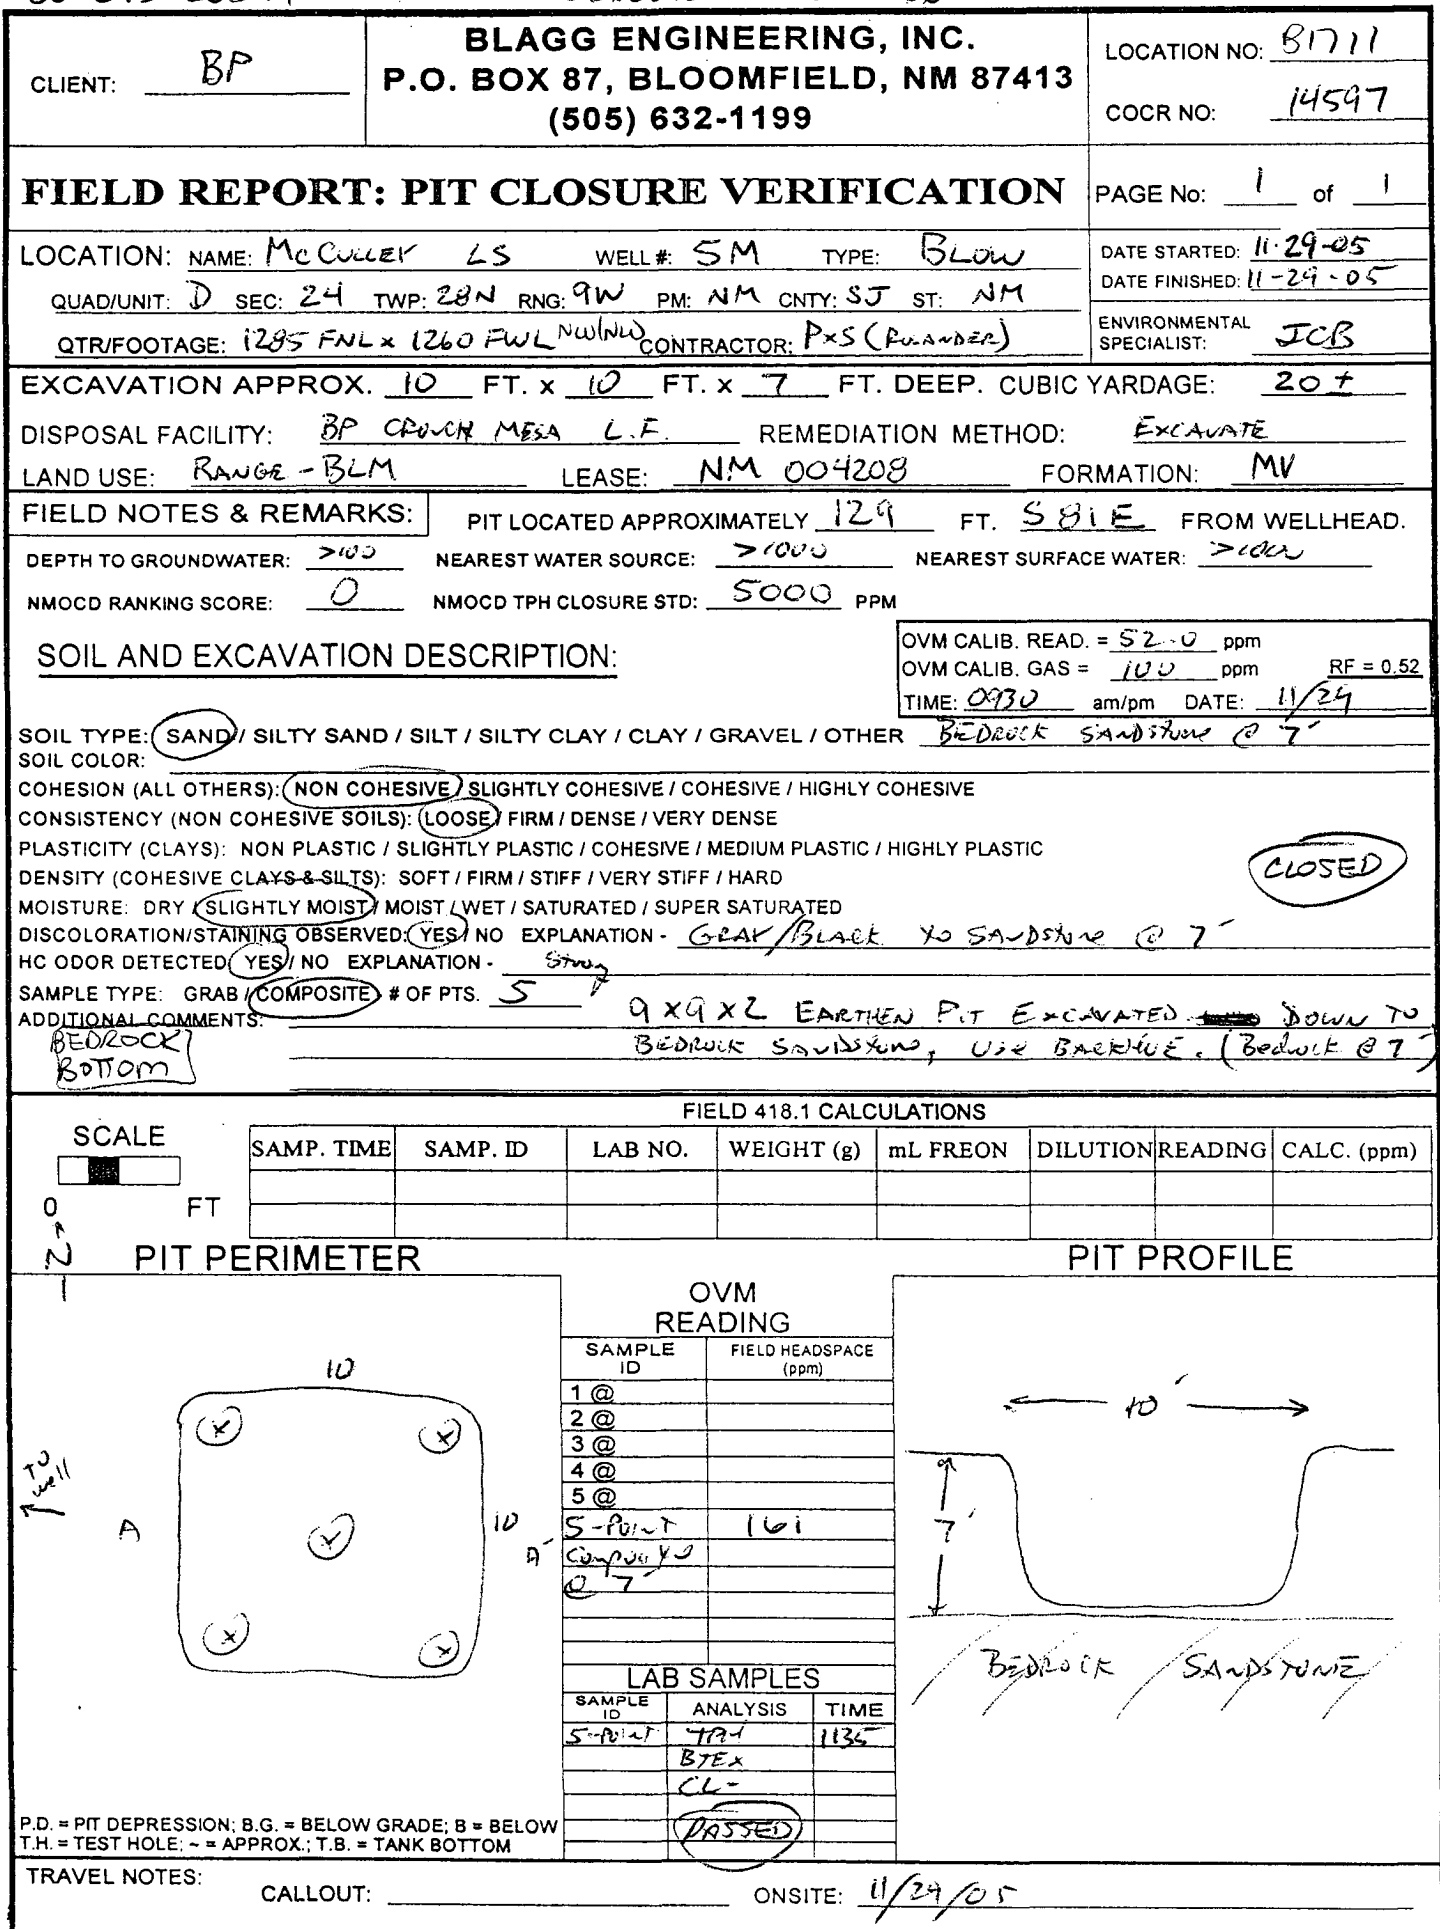 CLIENT: BP
BLAGG ENGINEERING, INC.
P.O. BOX 87, BLOOMFIELD, NM 87413
(505) 632-1199
LOCATION NO: B1711
COCR NO: 14597
FIELD REPORT: PIT CLOSURE VERIFICATION
PAGE No: 1 of 1
LOCATION: NAME: McCULLEY LS WELL #: 5M TYPE: BLOW
QUAD/UNIT: D SEC: 24 TWP: 28N RNG: 9W PM: NM CNTY: SJ ST: NM
QTR/FOOTAGE: 1285 FNL x 1260 FWL NW/NW CONTRACTOR: P&S
DATE STARTED: 11-29-05
DATE FINISHED: 11-29-05
ENVIRONMENTAL
SPECIALIST: JCB
EXCAVATION APPROX. 10 FT. x 10 FT. x 7 FT. DEEP. CUBIC YARDAGE: 20 ±
DISPOSAL FACILITY: BP CROUCH MESA L.F. REMEDIATION METHOD: EXCAVATE
LAND USE: RANGE - BLM LEASE: NM 004208 FORMATION: MV
FIELD NOTES & REMARKS: PIT LOCATED APPROXIMATELY 129 FT. S81E FROM WELLHEAD.
DEPTH TO GROUNDWATER: >100 NEAREST WATER SOURCE: >1000 NEAREST SURFACE WATER: >1000
NMOCD RANKING SCORE: 0 NMOCD TPH CLOSURE STD: 5000 PPM
SOIL AND EXCAVATION DESCRIPTION:
OVM CALIB. READ. = 52.0 ppm
OVM CALIB. GAS = 100 ppm RF = 0.52
TIME: 0930 am/pm DATE: 11/29
SOIL TYPE: SAND / SILTY SAND / SILT / SILTY CLAY / CLAY / GRAVEL / OTHER BEDROCK SANDSTONE @ 7'
SOIL COLOR:
COHESION (ALL OTHERS): NON COHESIVE / SLIGHTLY COHESIVE / COHESIVE / HIGHLY COHESIVE
CONSISTENCY (NON COHESIVE SOILS): LOOSE / FIRM / DENSE / VERY DENSE
PLASTICITY (CLAYS): NON PLASTIC / SLIGHTLY PLASTIC / COHESIVE / MEDIUM PLASTIC / HIGHLY PLASTIC
DENSITY (COHESIVE CLAYS & SILTS): SOFT / FIRM / STIFF / VERY STIFF / HARD
CLOSED
MOISTURE: DRY / SLIGHTLY MOIST / MOIST / WET / SATURATED / SUPER SATURATED
DISCOLORATION/STAINING OBSERVED: YES / NO EXPLANATION - GRAY/BLACK TO SANDSTONE @ 7'
HC ODOR DETECTED: YES / NO EXPLANATION - Strong
SAMPLE TYPE: GRAB / COMPOSITE # OF PTS. 5
ADDITIONAL COMMENTS: 9 x 9 x 2 EARTHEN PIT EXCAVATED DOWN TO
BEDROCK SANDSTONE, USE BACKHOE. (Bedrock @ 7')
BEDROCK
BOTTOM
FIELD 418.1 CALCULATIONS
SCALE
0 FT
SAMP. TIME SAMP. ID LAB NO. WEIGHT (g) mL FREON DILUTION READING CALC. (ppm)
N
PIT PERIMETER
10
10
TO well
A
A'
OVM
READING
SAMPLE ID FIELD HEADSPACE (ppm)
1 @
2 @
3 @
4 @
5 @
5-POINT 161
COMPOSITE
@ 7'
LAB SAMPLES
SAMPLE ID ANALYSIS TIME
5-POINT TPH 1135
BTEX
CL-
PASSED
PIT PROFILE
10'
7'
BEDROCK SANDSTONE
P.D. = PIT DEPRESSION; B.G. = BELOW GRADE; B = BELOW
T.H. = TEST HOLE; ~ = APPROX.; T.B. = TANK BOTTOM
TRAVEL NOTES:
CALLOUT: ONSITE: 11/29/05